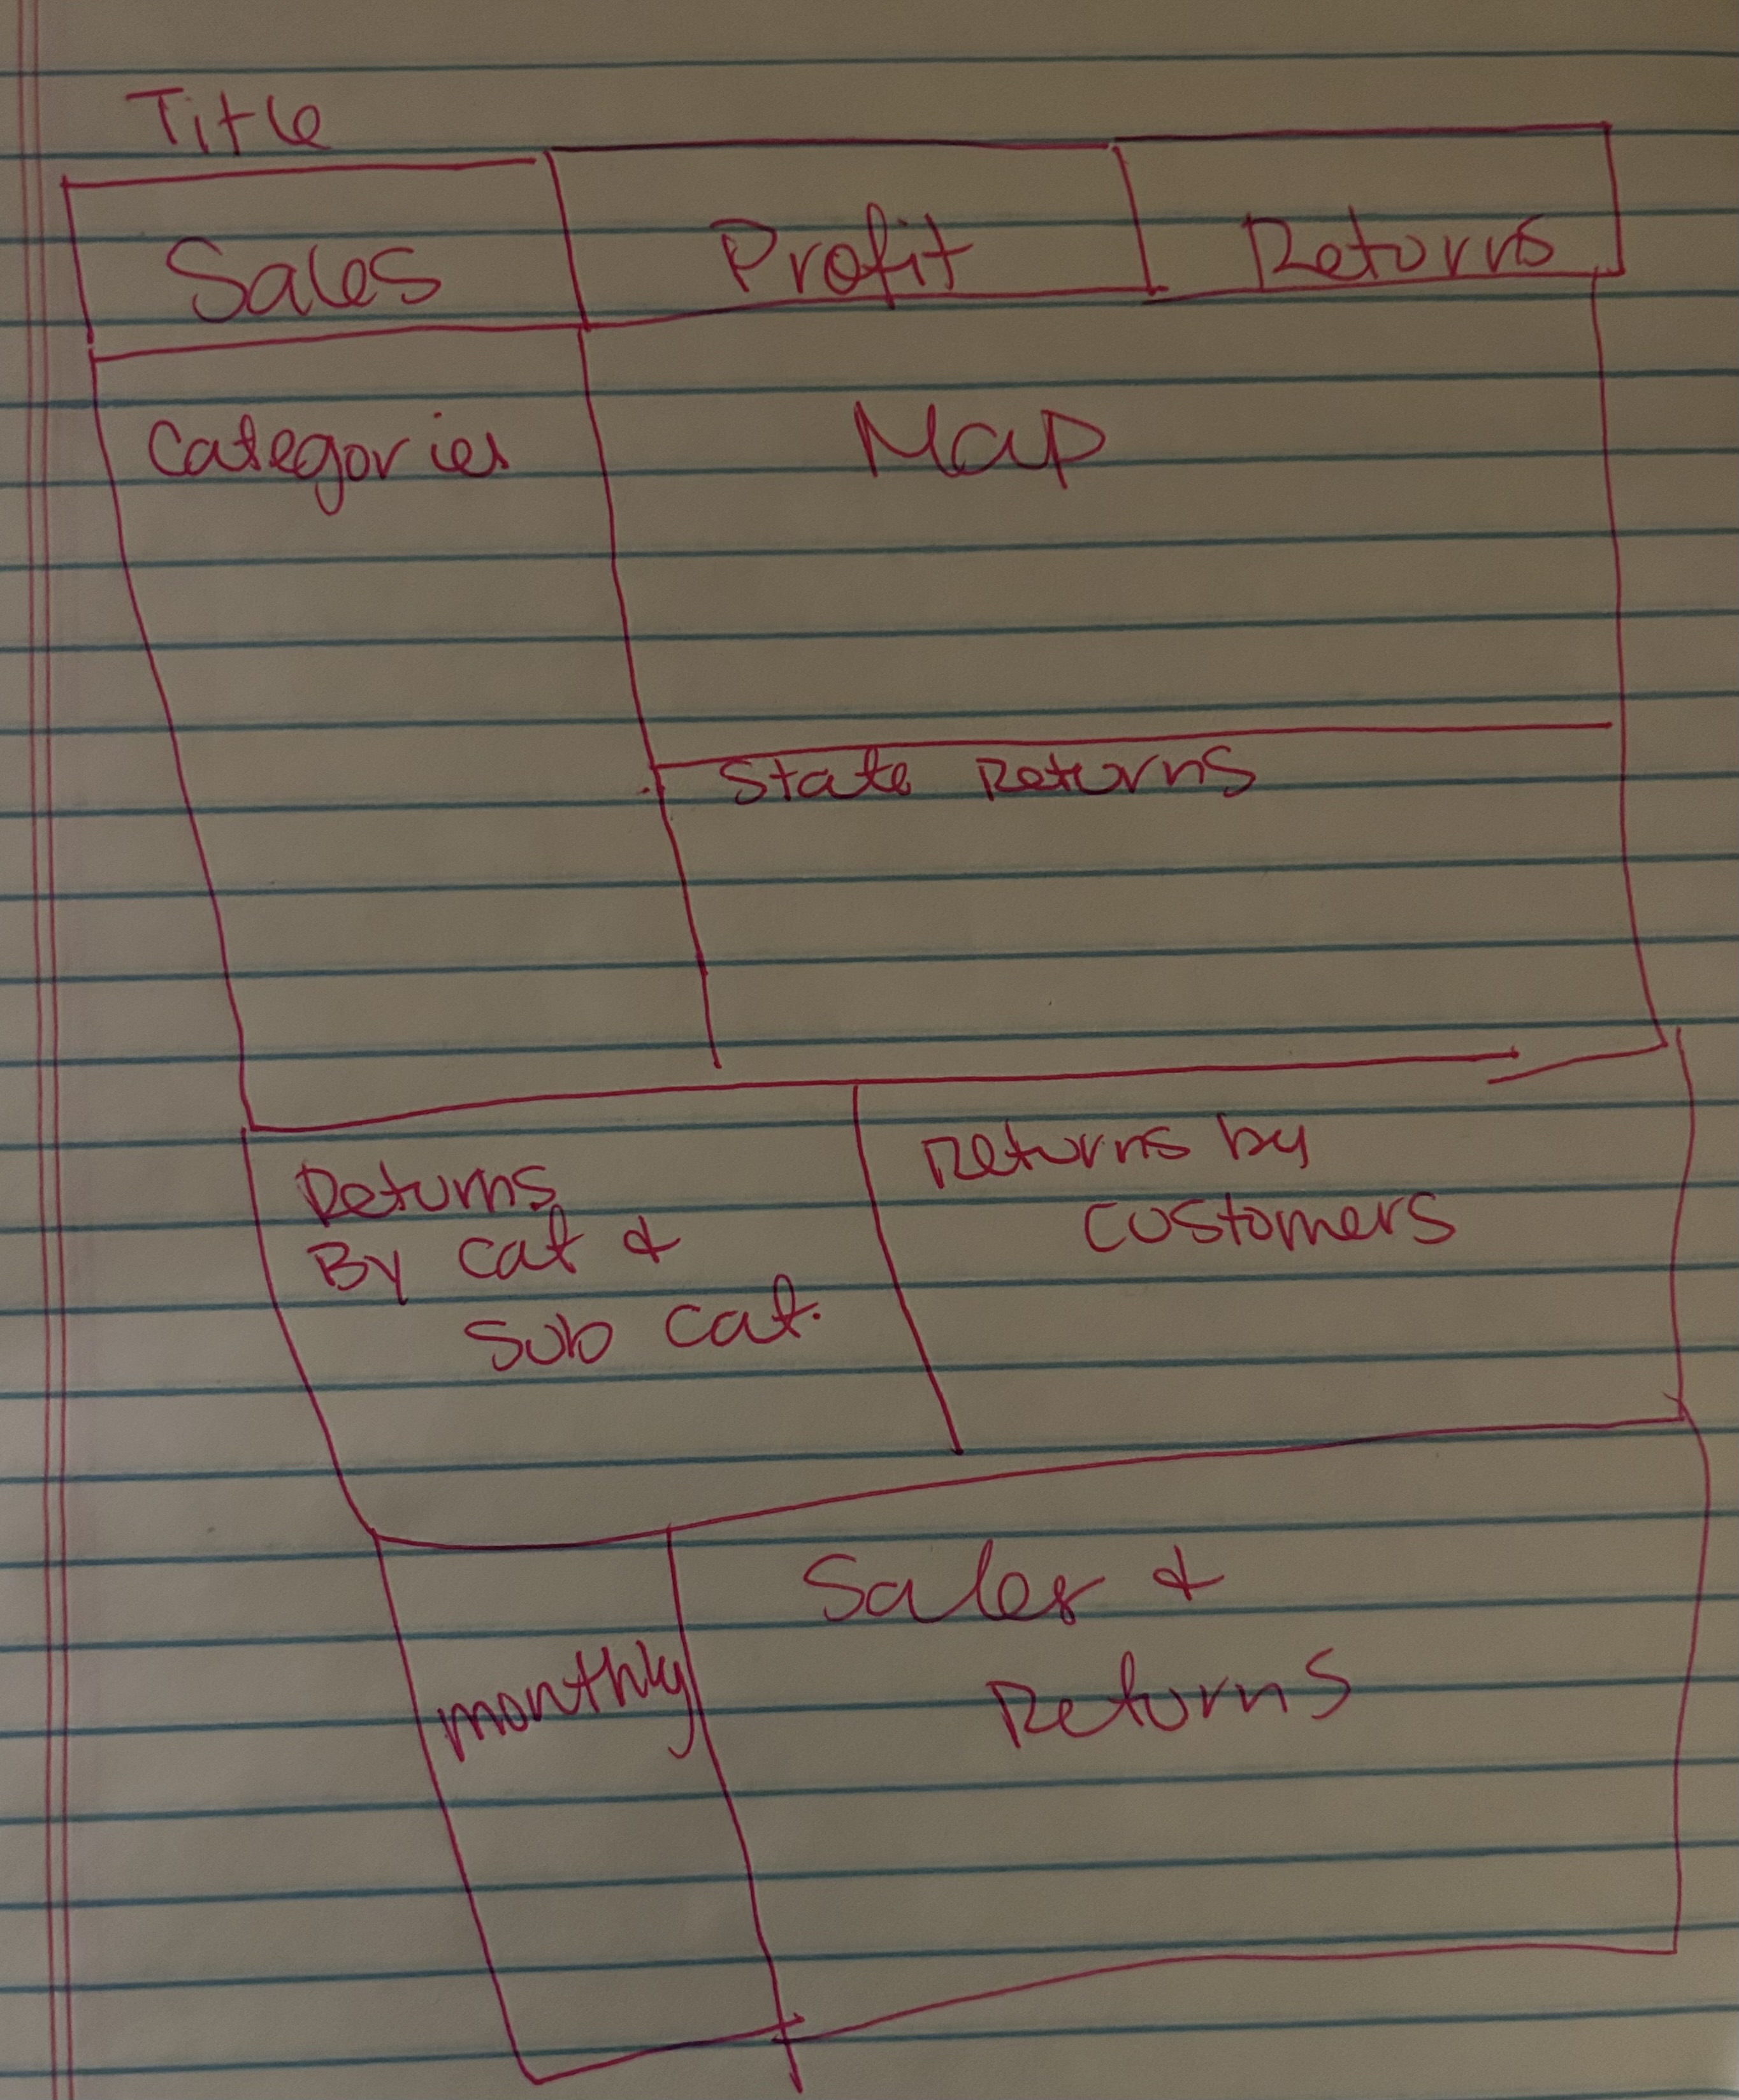 Title
Sales
Profit
Returns
Categories
Map
State Returns
Returns
By cat &
sub cat.
Returns by
customers
monthly
Sales &
Returns